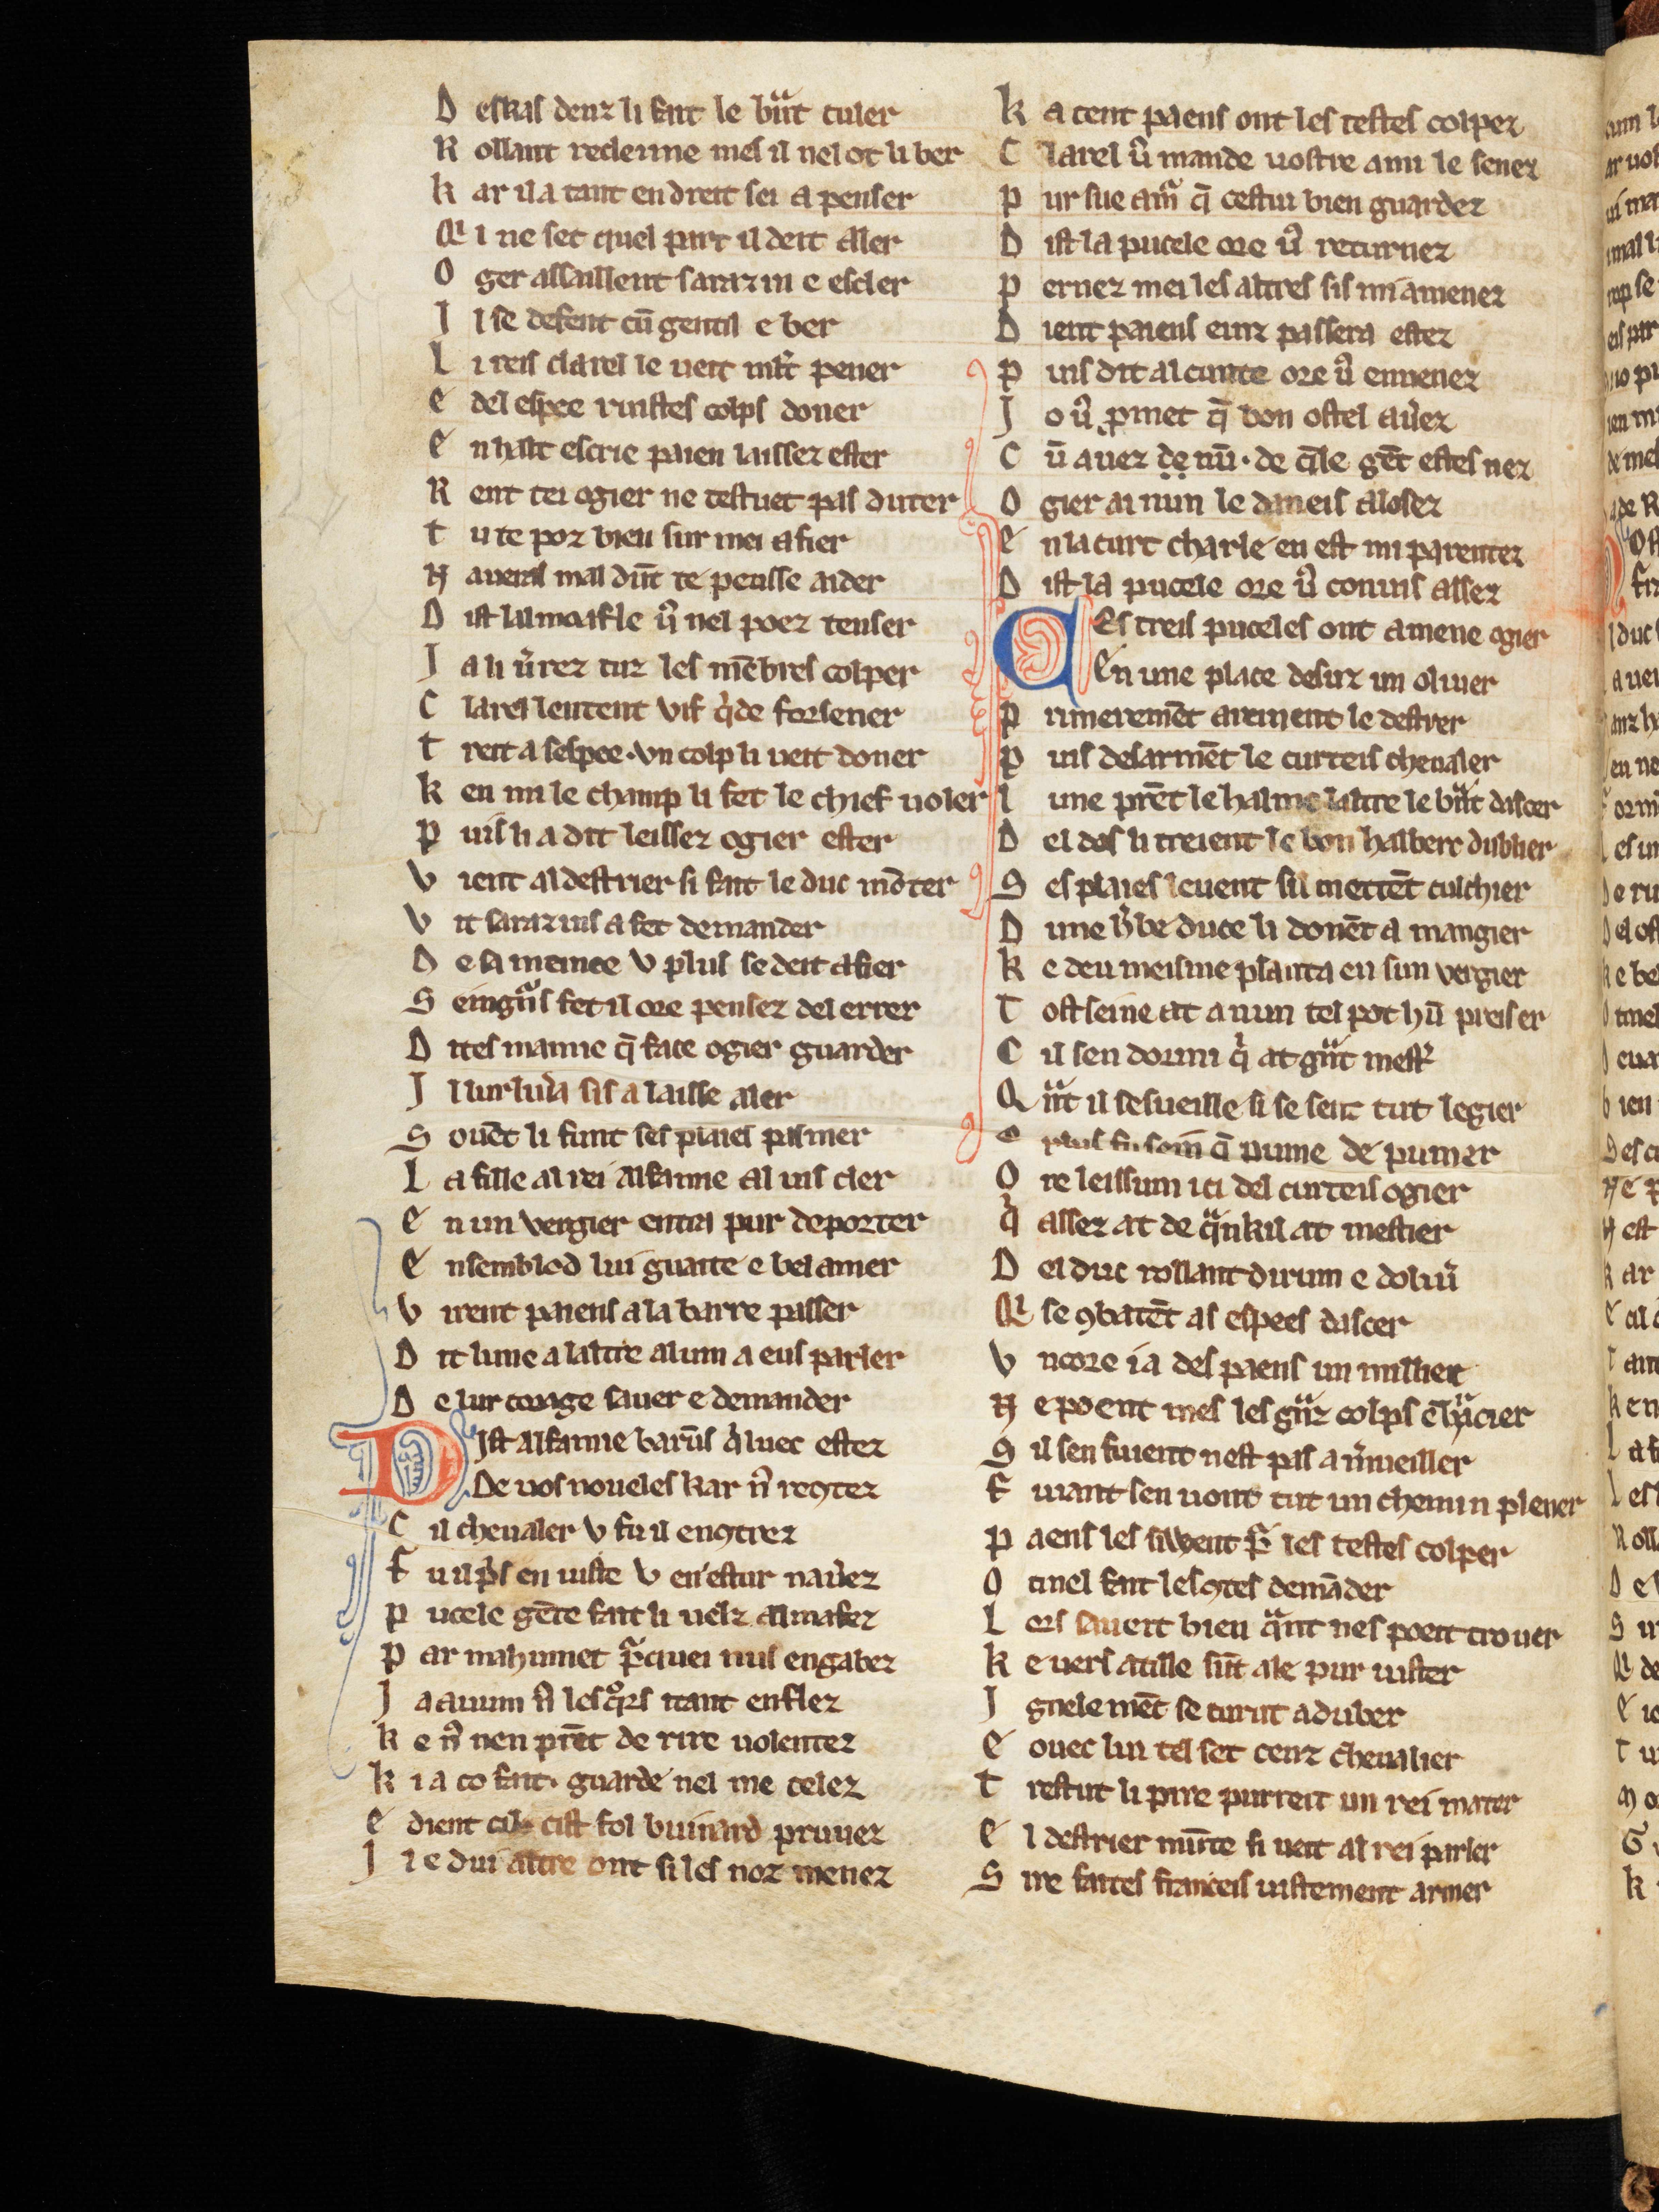 D eskas denz li fait le bͣnt culer
R ollant recleime mes il nel ot li ber
K ar il a tant endreit sei a penser
Q i ne set quel part il deit aler
O ger assaillent sarazin e escler
I l se defent cū gentil e ber
L i reis clarel le ueit mlt̄ pener
E del espee ruistes colps doner
E n halt escrie paien laissez ester
R ent tei ogier ne testuet pas duter
T u te poz bien sur mei afier
N aueras mal dūt te peusse aider
D ist lalmacifle uͦ nel poez tenser
J a li u̓rez tuz les mēbres colper
C larel lentent vif q̇de forsener
T reit a sespee. vn colp li ueit doner
K en mi le champ li fet le chief uoler
P uis li a dit leissez ogier ester
V ient al destrier si fait le duc mōter
V it sarazins a fet demander
D e sa meinee v plus se deit afier
S eingͣs fet il ore pensez del errer
D ites mamie q̄ face ogier guarder
I l lur liu̓a sis a laisse aler
S ouēt li funt ses plaies pasmer
L a fille al rei alfamie al uis cler
E n un vergier entra pur deporter
E nsemblod lui guaite e belamer
V irent paiens a la barre passer
D it lune a laltre alum a eus parler
D e lur corage sauer e demander
Dist alfamie barūs q̇ luec estez
De uos noueles kar n̓ recͻtez
C il cheualer v fu il encͻtrez
F u il p̓s en iuste v en estur nau̓ez
P ucele gēte fait li uelz almafez
P ar mahumet p̱ quei nus engabez
J a auum n̓ les q̊rs itant enflez
K e n̓ nen prēt de rire uolentez
K i a co fait. guarde nel me celez
E dient cil cist fol buinard pruuez
I l e dui altre ont si les noz menez
K a cent paens ont les testes colpez
C larel u̓ mande uostre ami le senez
P ur sue amͣ q̄ cestui bien guardez
D ist la pucele ore u̓ returnez
P ernez mei les altres sis mi amenez
D ient paiens einz passera estez
P uis dit al cunte ore u̓ enuenez
J o u̓ ꝓmet q̄ bon ostel au̓ez
C ū auez de nū. de q̄le gēt estes nez
O gier ai nun le daneis alosez
E n la curt charle en est mi parentez
D ist la pucele ore u̓ conuis assez
Ces treis puceles ont amene ogier
En une place desuz un oliuer
P rimeremēt areinent le destrer
P uis desarmēt le curteis cheualer
L une prēt le halme laltre le bͣnt dascer
D el dos li treient le bon halberc dublier
S es plaies leuent sil mettēt culchier
D une h̓be duce li donēt a mangier
K e deu meisme planta en sun vergier
T ost seine at a nun tel pot hū preiser
C il sen dormi q̇ at gͣnt mest̓
Q ͣnt il sesueille si se sent tut legier
E plus fu sain q̄ pume de pumer
O re leissum ici del curteis ogier
q̇ assez at de qͣnkil at mestier
D el duc rollant dirum e doliu̓
Q i se ͻbatēt as espees dascer
V ncore i a des paens un millier
N e poent mes les gͣnz colps ēhͣcier
S il sen fuient nest pas a m̓ueiller
F uiant sen uont tut un chemin plener
P aens les siwent p̱ les testes colper
O tinel fait les ͻtes demāder
L ors sauert bien qͣnt nes poeit trouer
K e uers atille sūt ale pur iuster
I gnelemēt se curut aduber
E ouec lui tel set cenz cheualier
T restut li pire purreit un rei mater
E l destrier mūte si ueit al rei parler
S ire faites franceis uistement armer